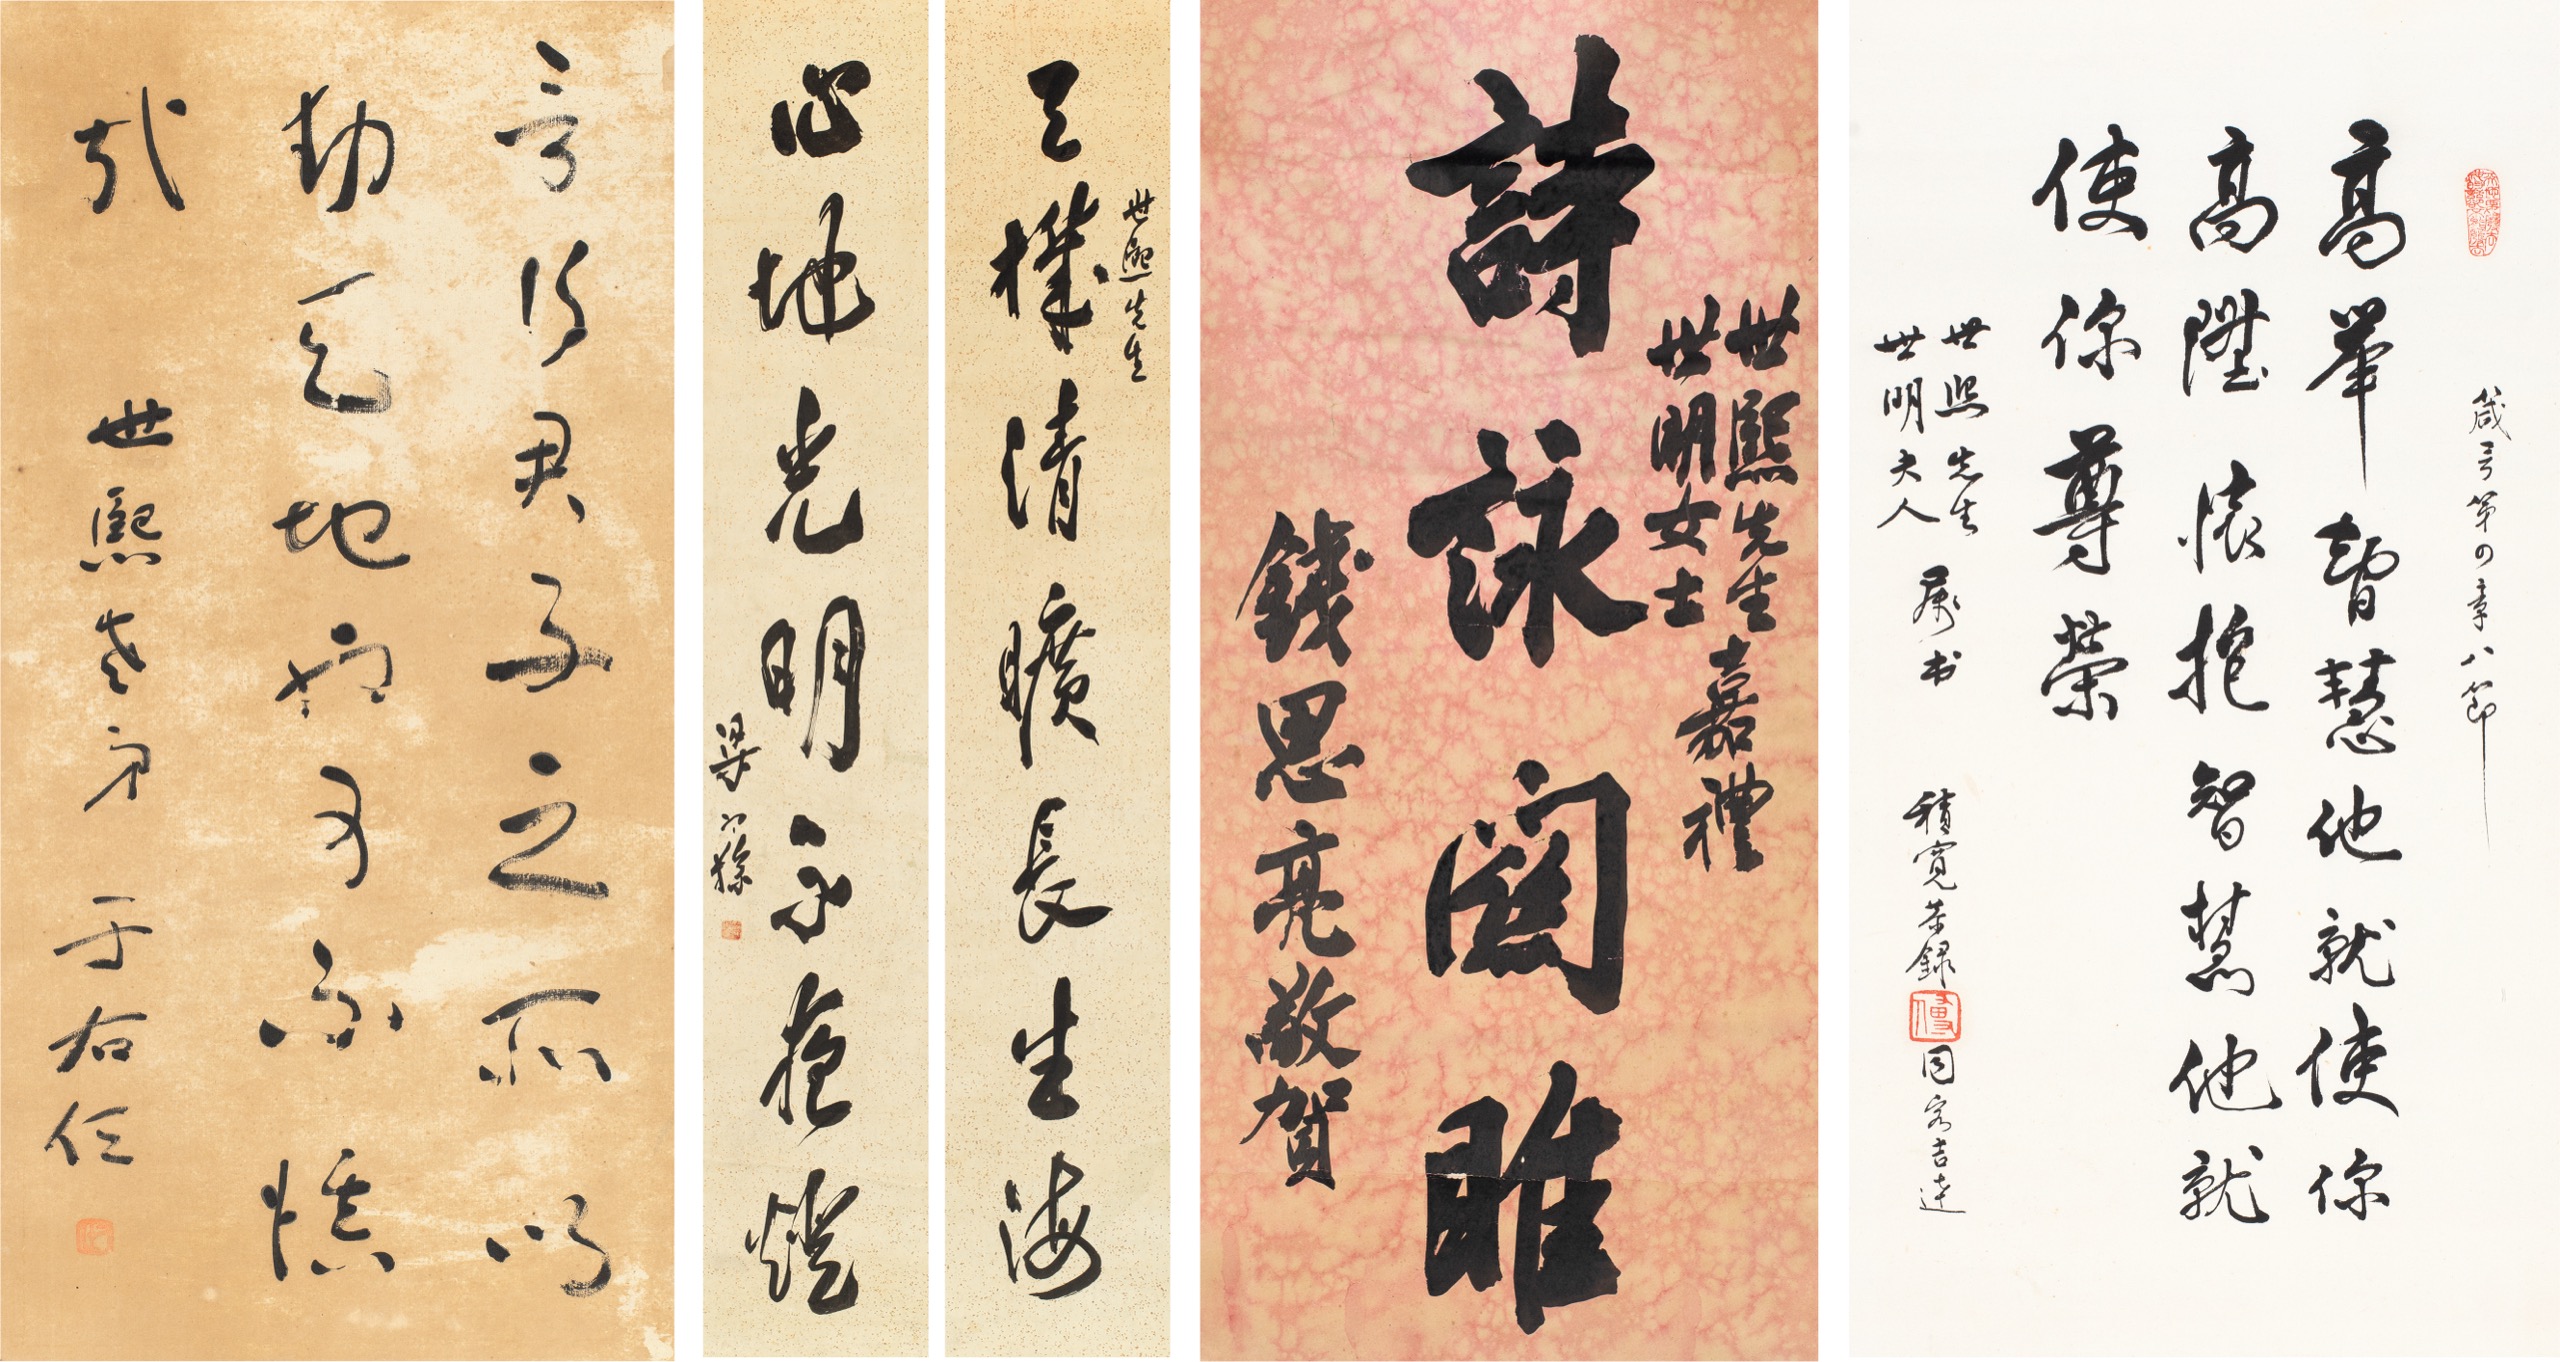 箴言第四章八節
高舉智慧他就使你
高陞懷抱智慧他就
使你尊榮
世熙先生
世明夫人
屬书
積寬恭録 同客吉達
世熙先生
世明女士
嘉禮
詩詠関雎
錢思亮敬賀
世熙先生
天機清曠長生海
心地光明不夜燈
梁寒操
言行君子之所以
動天地也可不慎
哉
世熙老弟 于右任